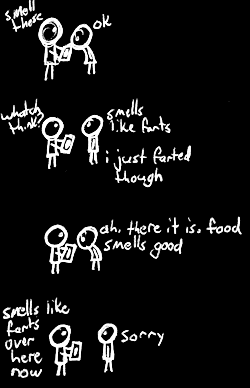 smell
these
ok
whatch
think?
smells
like farts
i just farted
though
ah, there it is. food
smells good
smells like
farts
over
here
now
sorry